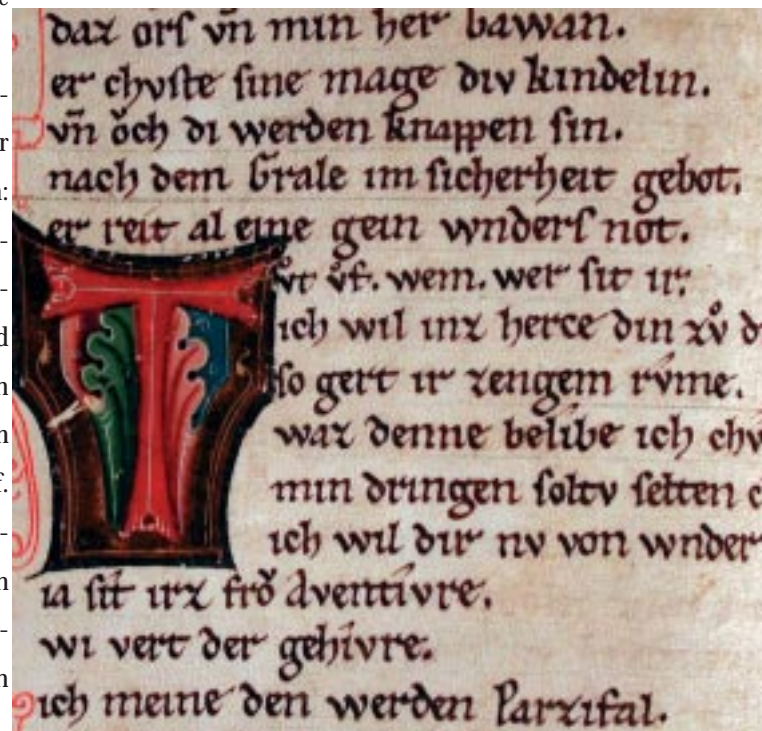 daz orſ vn̄ min her bawan.
er chvſte ſine mage div kindelin.
vn̄ oͮch di werden knappen ſin.
nach dem Grale im ſicherheit gebot.
er reit al eine gein wnderſ not.
Tvͦt vͦf. wem. wer ſit ir;
ich wil inz herce din zvͦ d
ſo gert ir zengem rvme.
waz denne belibe ich chv
min dringen ſoltv ſelten c
ich wil dir nv von wnder
ia ſit irz froͮ Aventivre.
wi vert der gehivre.
ich meine den werden Parzifal.